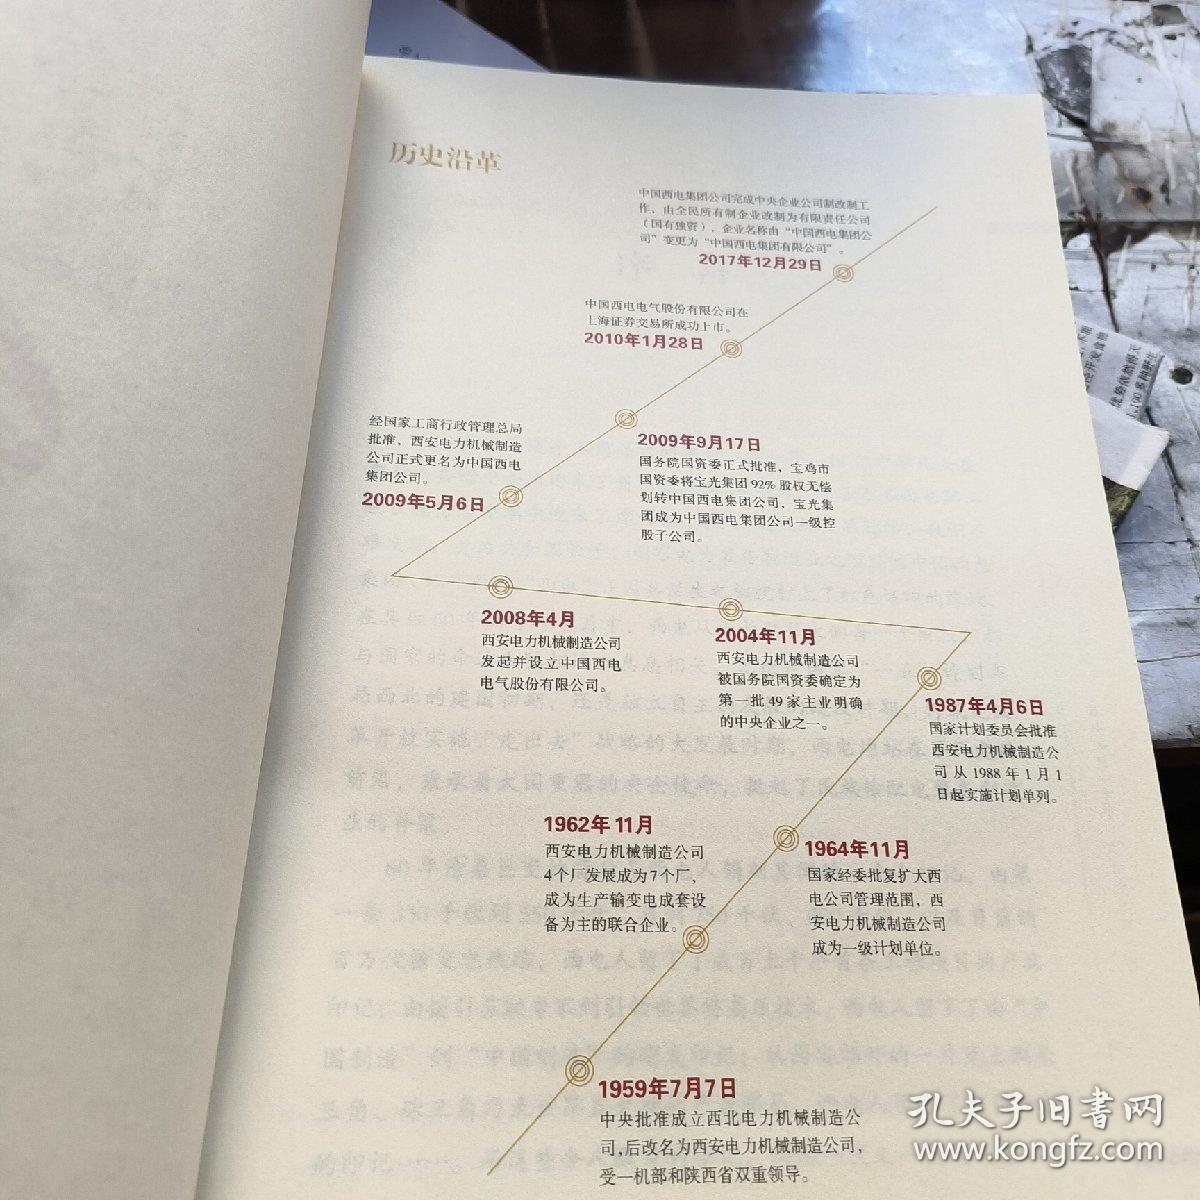 历史沿革
中国西电集团公司完成中央企业公司制改制工
作，由全民所有制企业改制为有限责任公司
（国有独资），企业名称由“中国西电集团公
司”变更为“中国西电集团有限公司”。
2017年12月29日
中国西电电气股份有限公司在
上海证券交易所成功上市。
2010年1月28日
经国家工商行政管理总局
批准，西安电力机械制造
公司正式更名为中国西电
集团公司。
2009年5月6日
2009年9月17日
国务院国资委正式批准，宝鸡市
国资委将宝光集团92%股权无偿
划转中国西电集团公司，宝光集
团成为中国西电集团公司一级控
股子公司。
2008年4月
西安电力机械制造公司
发起并设立中国西电
电气股份有限公司。
2004年11月
西安电力机械制造公司
被国务院国资委确定为
第一批49家主业明确
的中央企业之一。
1987年4月6日
国家计划委员会批准
西安电力机械制造公
司从1988年1月1
日起实施计划单列。
1962年11月
西安电力机械制造公司
4个厂发展成为7个厂，
成为生产输变电成套设
备为主的联合企业。
1964年11月
国家经委批复扩大西
电公司管理范围，西
安电力机械制造公司
成为一级计划单位。
1959年7月7日
中央批准成立西北电力机械制造公
司，后改名为西安电力机械制造公司，
受一机部和陕西省双重领导。
孔夫子旧书网
www.kongfz.com